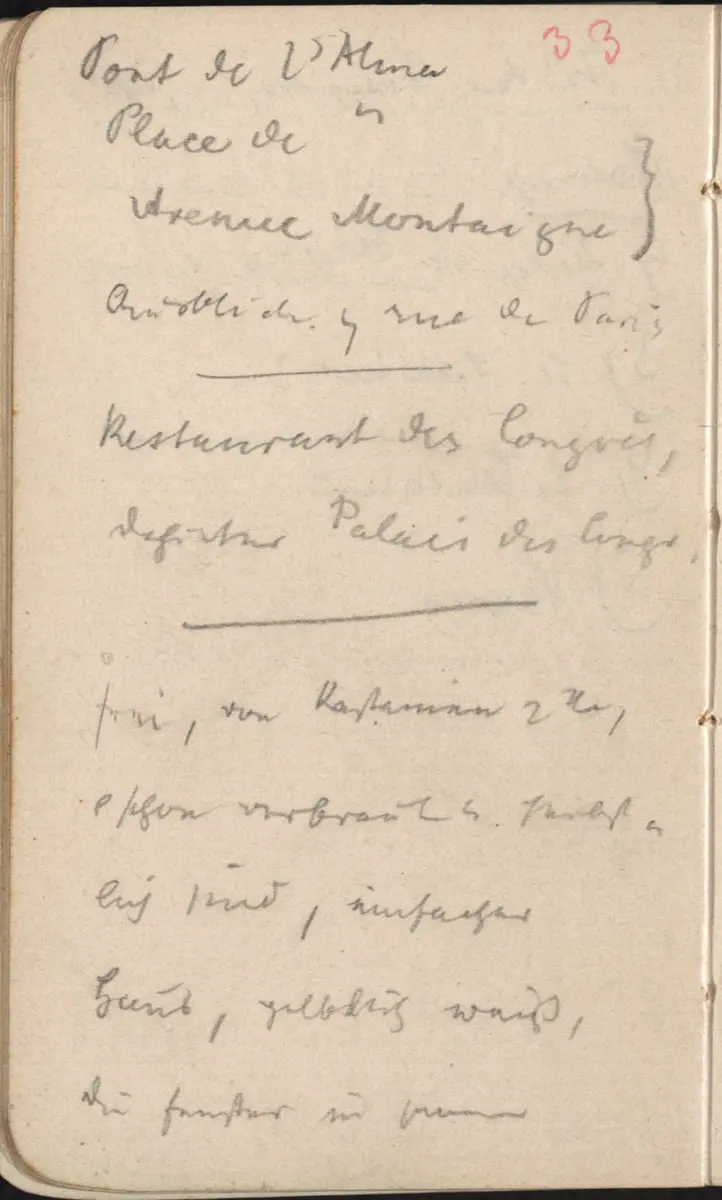 33
Pont de l'Alma
Place de "
Avenue Montaigne }
Ausblick. rue de Paris
Restaurant des Congrès,
dahinter Palais des Congr.
frei, von Kastanien
schon verbraut u. herbst-
lich sind, einfaches
Haus, gelblich weiß,
die Fenster in